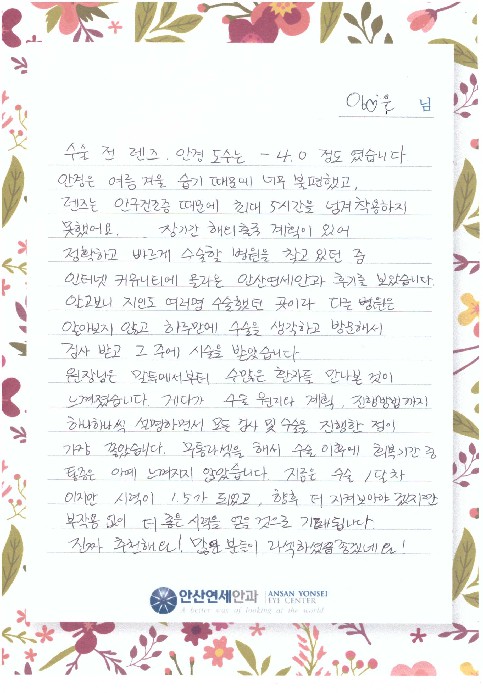 이♡윤 님
수술 전 렌즈. 안경 도수는 -4.0 정도 였습니다
안경은 여름 겨울 습기 때문에 너무 불편했고,
렌즈는 안구건조증 때문에 최대 5시간을 넘겨 착용하지
못했어요. 장기간 해외출국 계획이 있어
정확하고 빠르게 수술할 병원을 찾고 있던 중
인터넷 커뮤니티에 올라온 안산연세안과 후기를 보았습니다.
알고보니 지인도 여러명 수술했던 곳이라 다른 병원은
알아보지 않고 하루만에 수술을 생각하고 방문해서
검사 받고 그 주에 시술을 받았습니다
원장님은 말투에서부터 수많은 환자를 만나본 것이
느껴졌습니다. 게다가 수술 원리나 계획, 진행방법까지
하나하나씩 설명하면서 모든 검사 및 수술을 진행한 점이
가장 좋았습니다. 무통라섹을 해서 수술 이후에 회복기간 중
통증은 아예 느껴지지 않았습니다. 지금은 수술 1달차
이지만 시력이 1.5가 되었고, 향후 더 지켜보아야 겠지만
부작용 없이 더 좋은 시력을 얻을 것으로 기대됩니다.
진짜 추천해요! 많은 분들이 라섹하셨음 좋겠네요!
안산연세안과 ANSAN YONSEI EYE CENTER
A better way of looking at the world